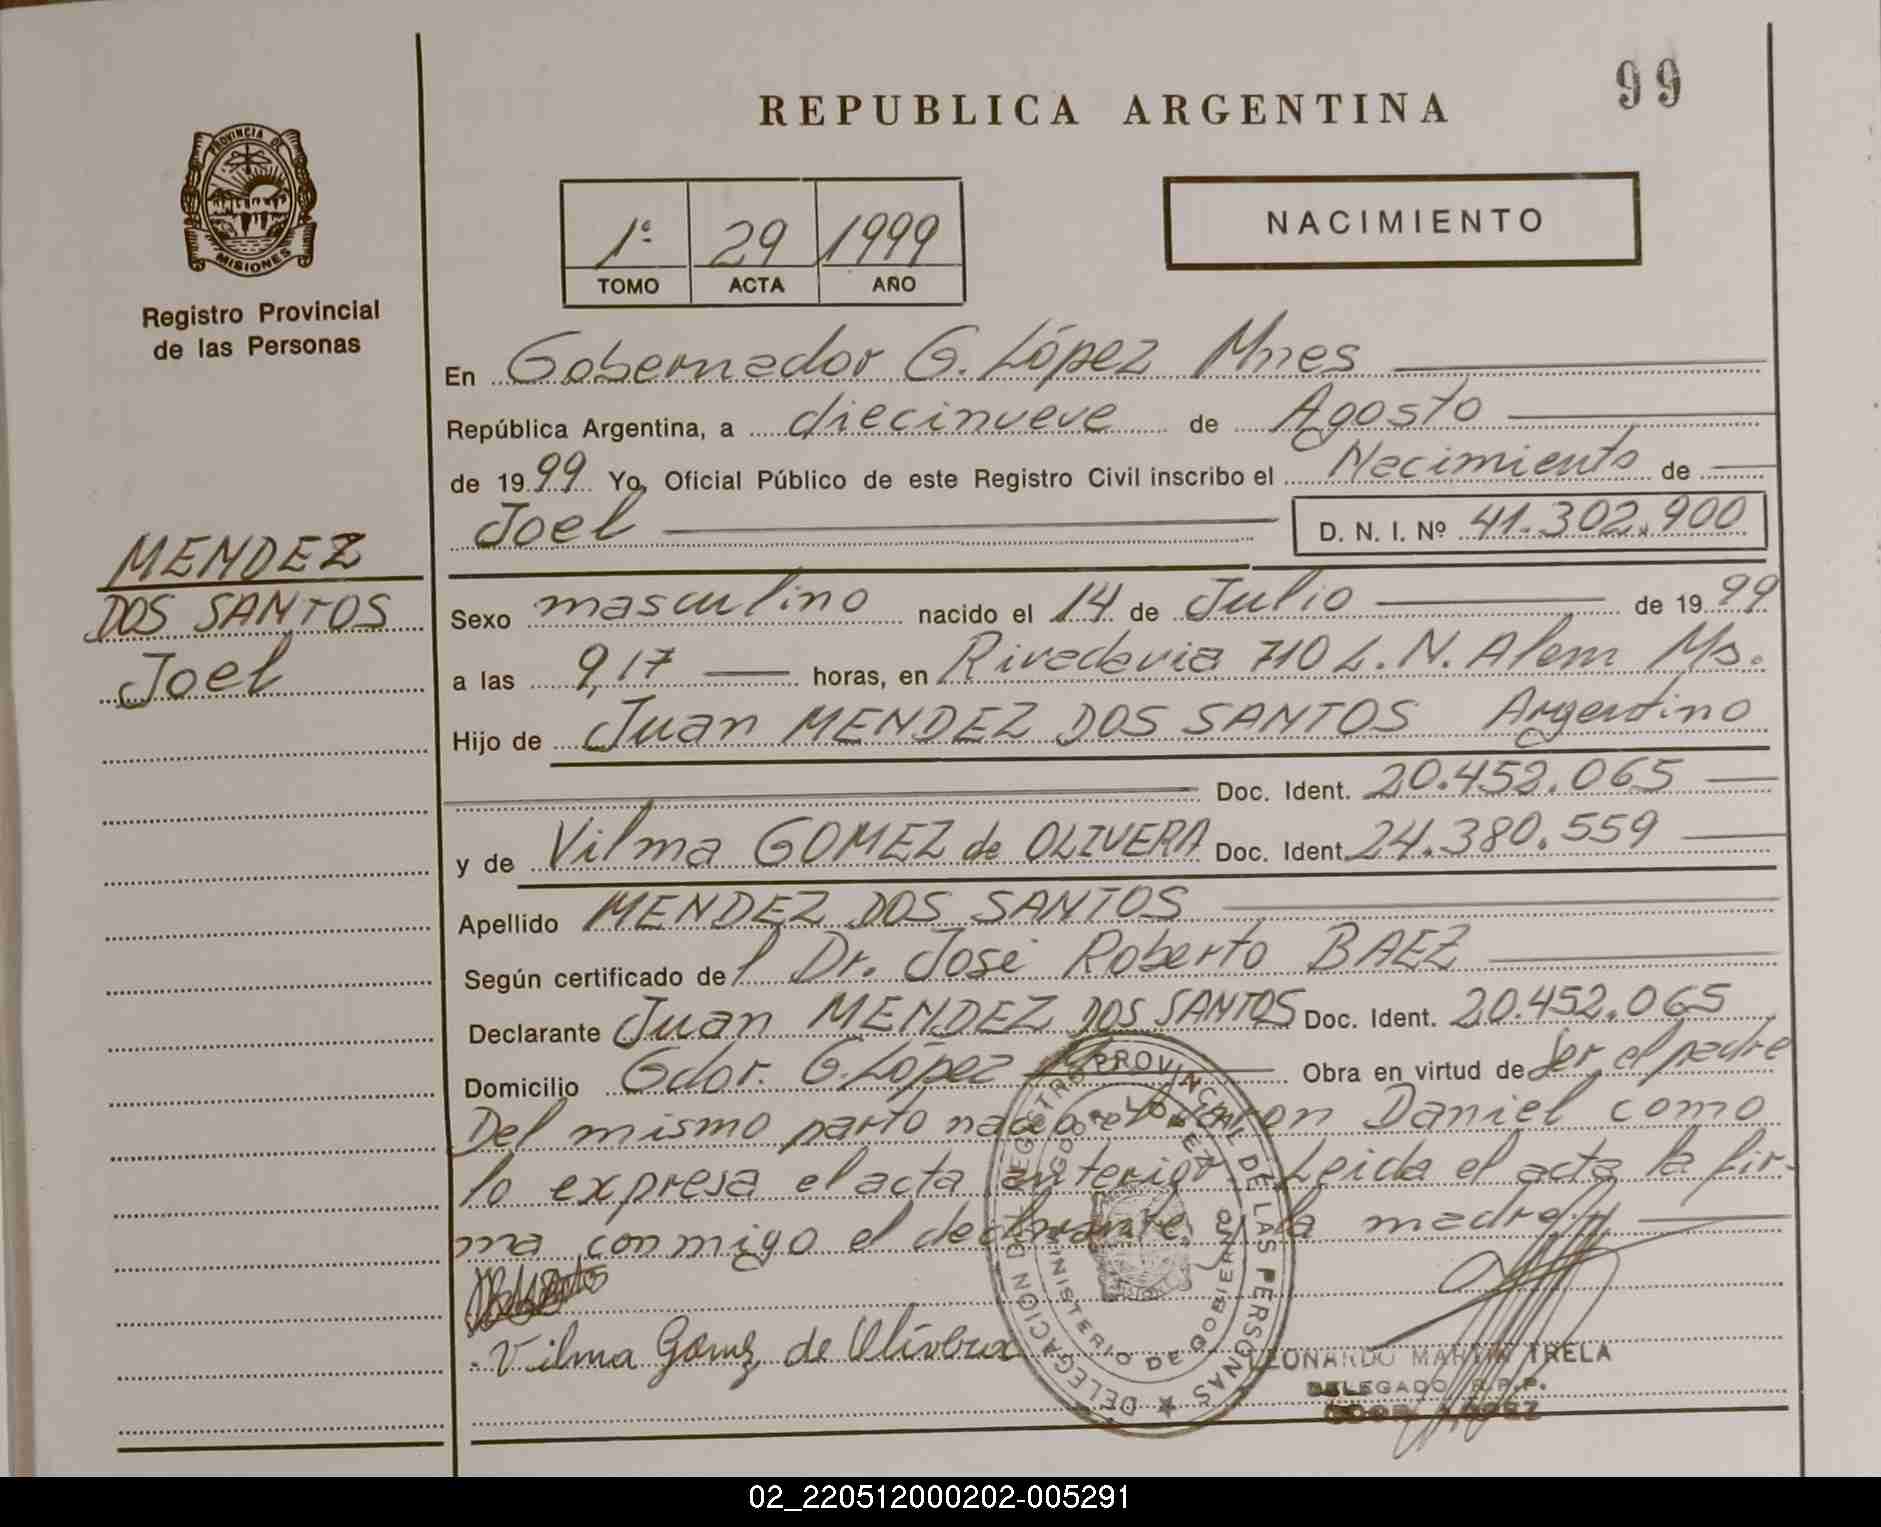 REPUBLICA ARGENTINA
99
PROVINCIA DE
MISIONES
Registro Provincial
de las Personas
1º 29 1999
TOMO ACTA AÑO
NACIMIENTO
MENDEZ
DOS SANTOS
Joel
En Gobernador G. López Mnes
República Argentina, a diecinueve de Agosto
de 1999 Yo, Oficial Público de este Registro Civil inscribo el Nacimiento de
Joel D. N. I. Nº 41.302.900
Sexo masculino nacido el 14 de Julio de 1999
a las 9,17 horas, en Rivadavia 710 L. N. Alem Ms.
Hijo de Juan MENDEZ DOS SANTOS Argentino
Doc. Ident. 20.452.065
y de Vilma GOMEZ de OLIVERA Doc. Ident. 24.380.559
Apellido MENDEZ DOS SANTOS
Según certificado del Dr. José Roberto BAEZ
Declarante Juan MENDEZ DOS SANTOS Doc. Ident. 20.452.065
Domicilio Gdor. G. López Obra en virtud de Ser el padre
Del mismo parto nació el varon Daniel como
lo expresa el acta anterior. Leida el acta la fir-
ma conmigo el declarante y la madre
Vilma Gomez de Olivera
DELEGACION DEL REGISTRO PROVINCIAL DE LAS PERSONAS
MINISTERIO DE GOBIERNO
LEONARDO MARTIN TRELA
DELEGADO R.P.P.
GDOR. LOPEZ
02_220512000202-005291